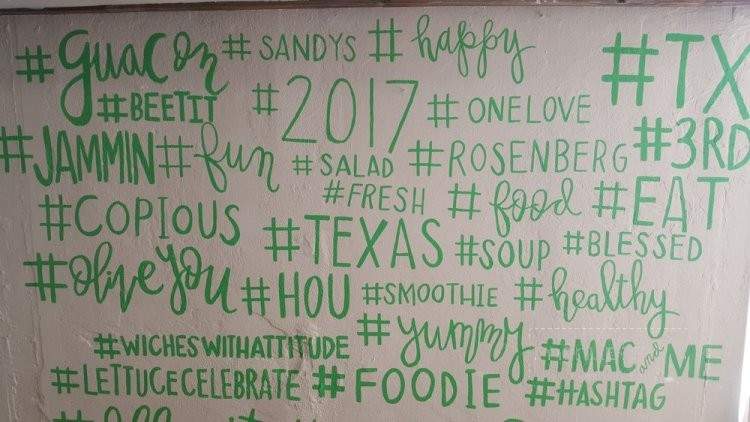 #guac on #SANDYS #happy #TX
#BEETIT #2017 #ONELOVE
#JAMMIN #fun #SALAD #ROSENBERG #3RD
#FRESH #food #EAT
#COPIOUS #TEXAS #SOUP #BLESSED
#Olive you #HOU #SMOOTHIE #healthy
#WICHESWITHATTITUDE #yummy #MAC and ME
#LETTUCECELEBRATE #FOODIE #HASHTAG